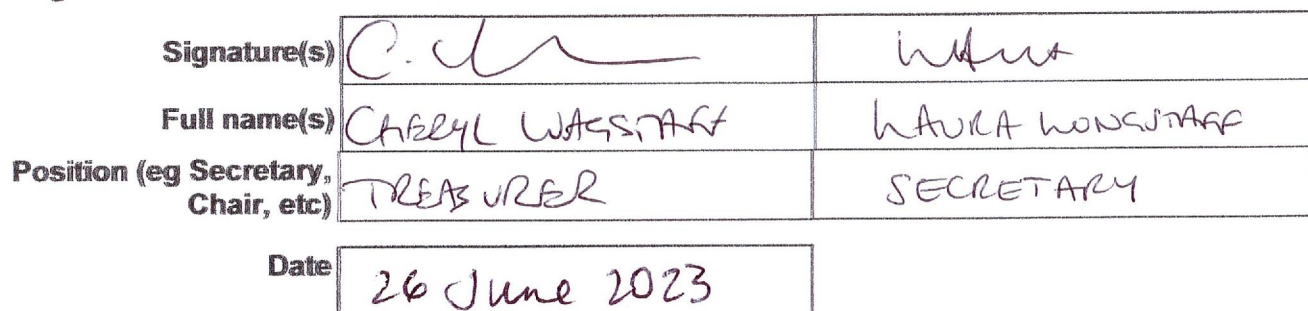 Signature(s)
Full name(s) CHERYL WAGSTAFF LAURA LONGSTAFF
Position (eg Secretary,
Chair, etc) TREASURER SECRETARY
Date 26 June 2023